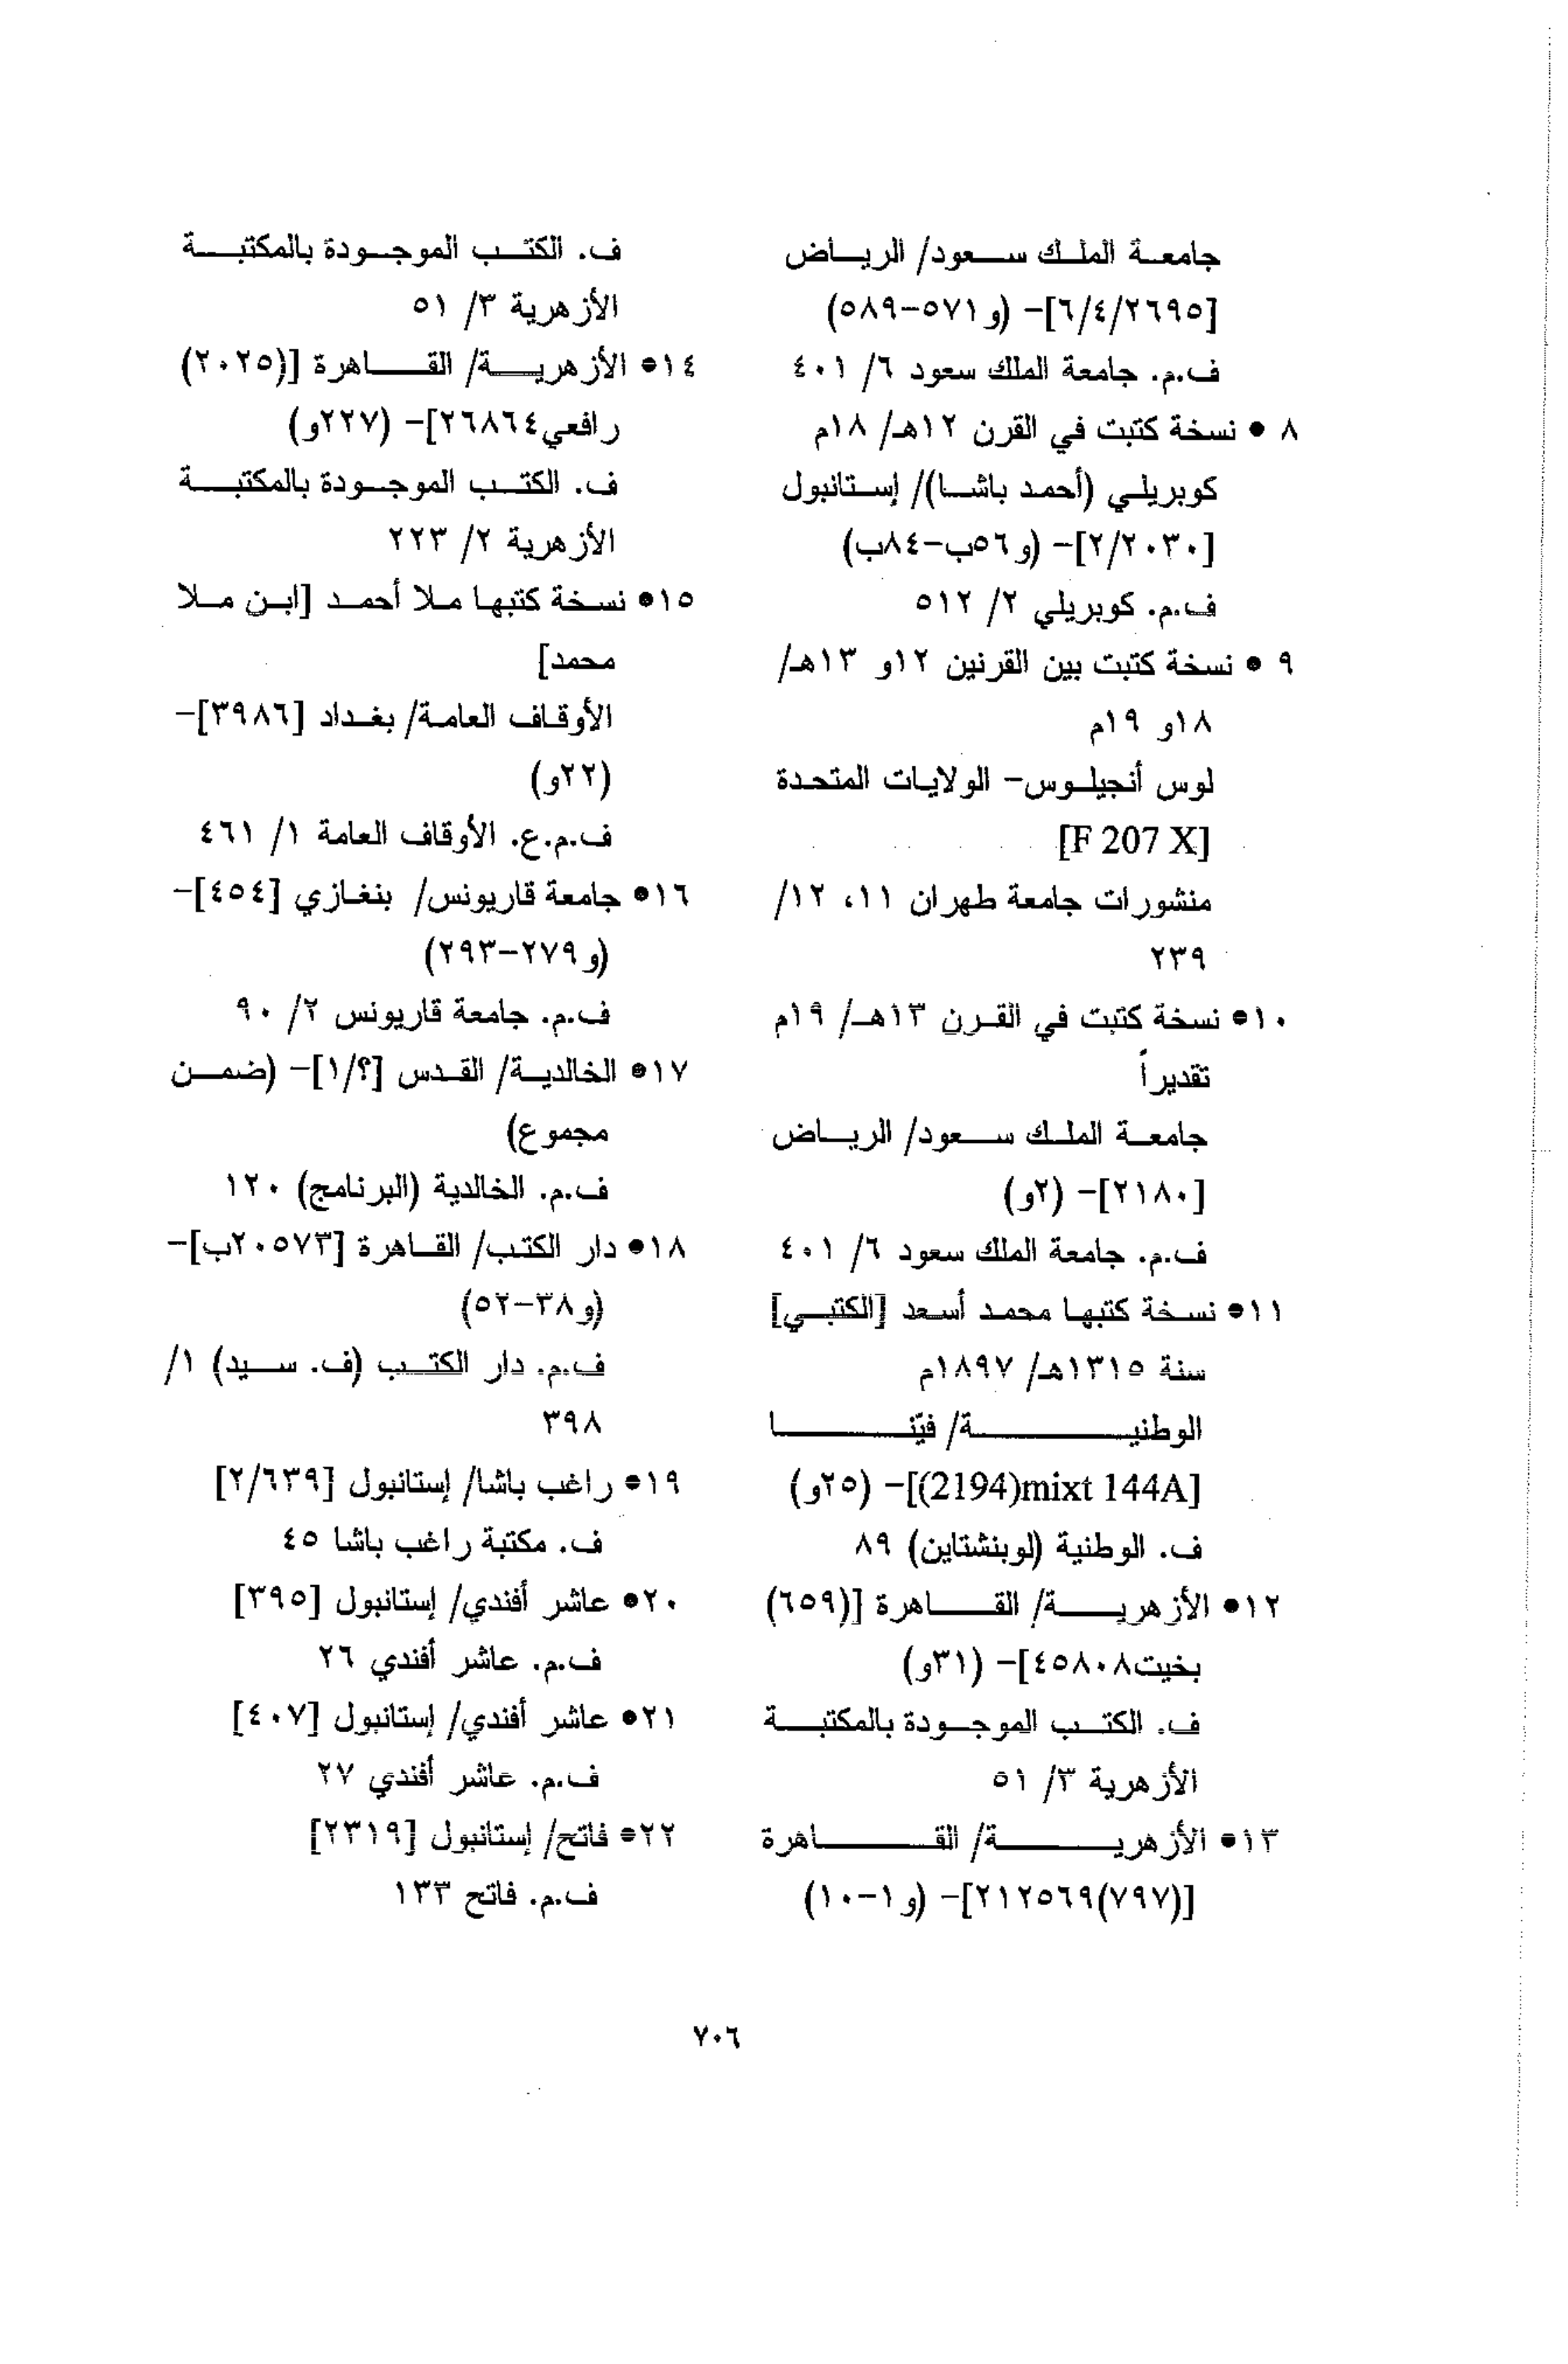 جامعة الملك سعود/ الرياض
[٢٦٩٥/٤/٦]- (و ٥٧١-٥٨٩)
ف.م. جامعة الملك سعود ٦/ ٤٠١
٨ • نسخة كتبت في القرن ١٢هـ/ ١٨م
كوبريلي (أحمد باشا)/ إستانبول
[٢/٢٠٣٠]- (و ٥٦ب-٨٤ب)
ف.م. كوبريلي ٢/ ٥١٢
٩ • نسخة كتبت بين القرنين ١٢و ١٣هـ/
١٨و ١٩م
لوس أنجيلوس- الولايات المتحدة
[F 207 X]
منشورات جامعة طهران ١١، ١٢/
٢٣٩
١٠• نسخة كتبت في القرن ١٣هـ/ ١٩م
تقديراً
جامعة الملك سعود/ الرياض
[٢١٨٠]- (٢و)
ف.م. جامعة الملك سعود ٦/ ٤٠١
١١• نسخة كتبها محمد أسعد [الكتبي]
سنة ١٣١٥هـ/ ١٨٩٧م
الوطنية/ فيّنا
[mixt 144A(2194)]- (٢٥و)
ف. الوطنية (لوبنشتاين) ٨٩
١٢• الأزهرية/ القاهرة [(٦٥٩)
بخيت٤٥٨٠٨]- (٣١و)
ف. الكتب الموجودة بالمكتبة
الأزهرية ٣/ ٥١
١٣• الأزهرية/ القاهرة
[(٧٩٧)٢١٢٥٦٩]- (و ١-١٠)
ف. الكتب الموجودة بالمكتبة
الأزهرية ٣/ ٥١
١٤• الأزهرية/ القاهرة [(٢٠٢٥)
رافعي٢٦٨٦٤]- (٢٢٧و)
ف. الكتب الموجودة بالمكتبة
الأزهرية ٢/ ٢٢٣
١٥• نسخة كتبها ملا أحمد [ابن ملا
محمد]
الأوقاف العامة/ بغداد [٣٩٨٦]-
(٢٢و)
ف.م.ع. الأوقاف العامة ١/ ٤٦١
١٦• جامعة قاريونس/ بنغازي [٤٥٤]-
(و ٢٧٩-٢٩٣)
ف.م. جامعة قاريونس ٢/ ٩٠
١٧• الخالدية/ القدس [؟/١]- (ضمن
مجموع)
ف.م. الخالدية (البرنامج) ١٢٠
١٨• دار الكتب/ القاهرة [٢٠٥٧٣ب]-
(و ٣٨-٥٢)
ف.م. دار الكتب (ف. سيد) ١/
٣٩٨
١٩• راغب باشا/ إستانبول [٢/٦٣٩]
ف. مكتبة راغب باشا ٤٥
٢٠• عاشر أفندي/ إستانبول [٣٩٥]
ف.م. عاشر أفندي ٢٦
٢١• عاشر أفندي/ إستانبول [٤٠٧]
ف.م. عاشر أفندي ٢٧
٢٢• فاتح/ إستانبول [٢٣١٩]
ف.م. فاتح ١٣٣
٧٠٦